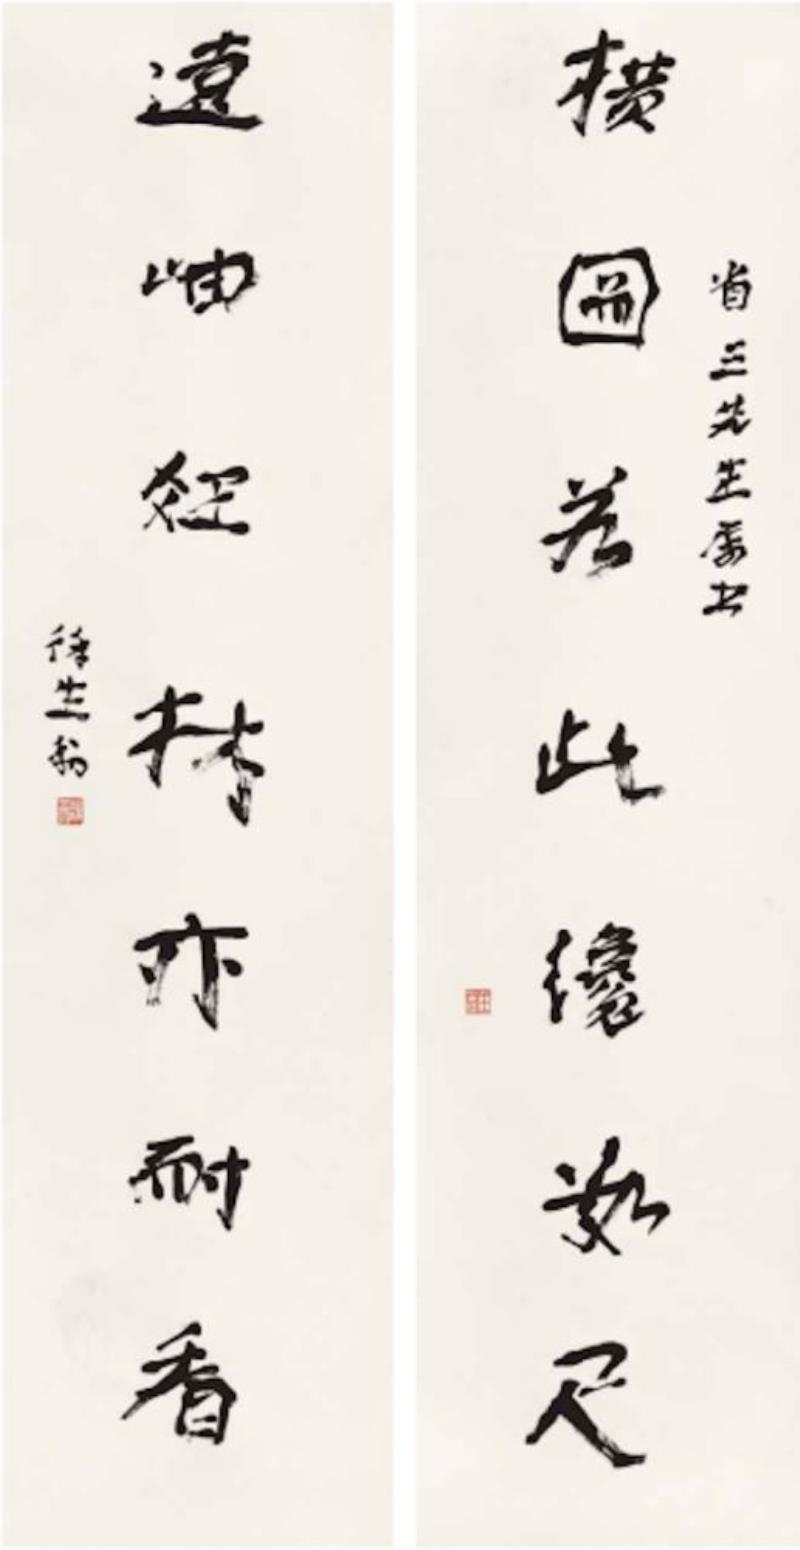 省三先生屬書
橫圖若此纔數尺
遠岫短林亦耐看
徐生翁